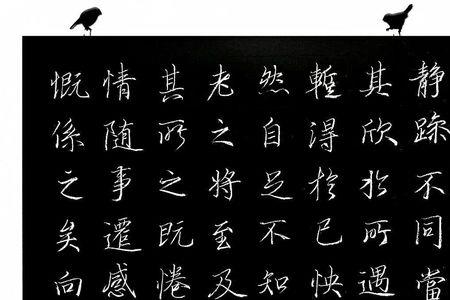 静躁不同當
其欣於所遇
暫得於己快
然自足不知
老之將至及
其所之既惓
情随事遷感
慨係之矣向